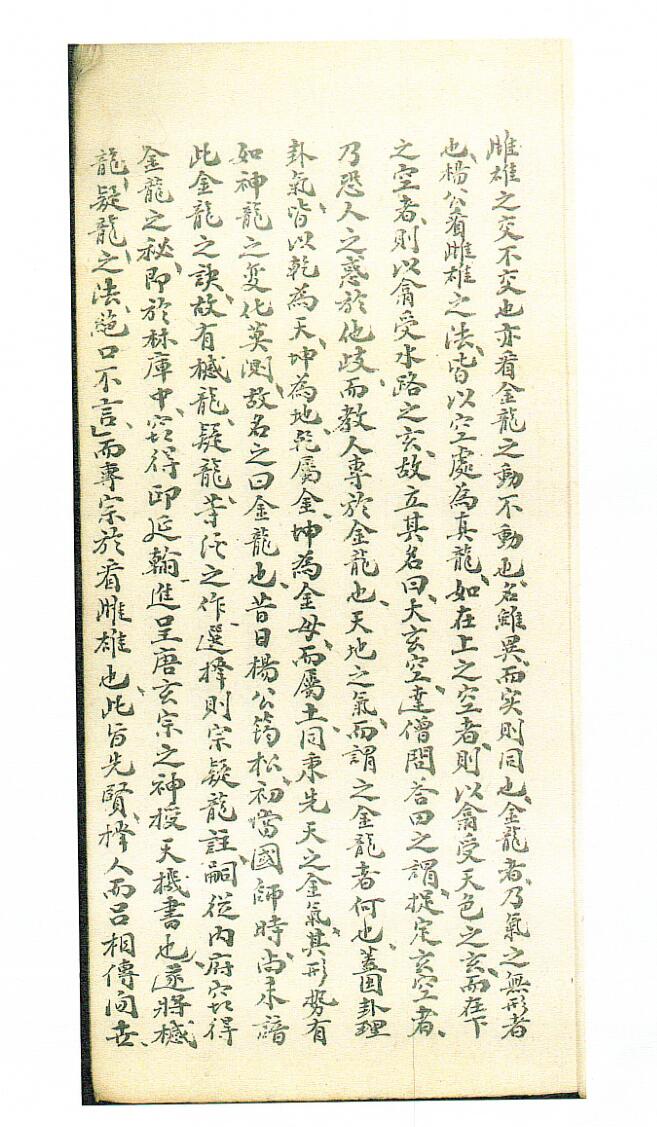 雌雄之交不交也亦看金龍之動不動也名雖異而实則同也金龍者乃氣之無形者
也楊公看雌雄之法皆以空處為真龍如在上之空者則以翕受天色之玄而在下
之空者則以翕受水路之玄故立其名曰大玄空達僧問答曰之謂捉定玄空者
乃恐人之惑於他歧而教人專於金龍也天地之氣而謂之金龍者何也蓋因卦理
卦氣皆以乾為天坤為地乾屬金坤為金母而屬土同秉先天之金氣其形勢有
如神龍之变化莫測故名之曰金龍也昔日楊公筠松初當國師時尚未諳
此金龍之訣故有撼龍疑龍等活之作選擇則宗疑龍註嗣從内府窃得
金龍之秘即於林庫中窃得邱延翰進呈唐玄宗之神授天機書也遂將撼
龍疑龍之法絕口不言」而專宗於看雌雄也此旨先賢擇人而吕相傳向世